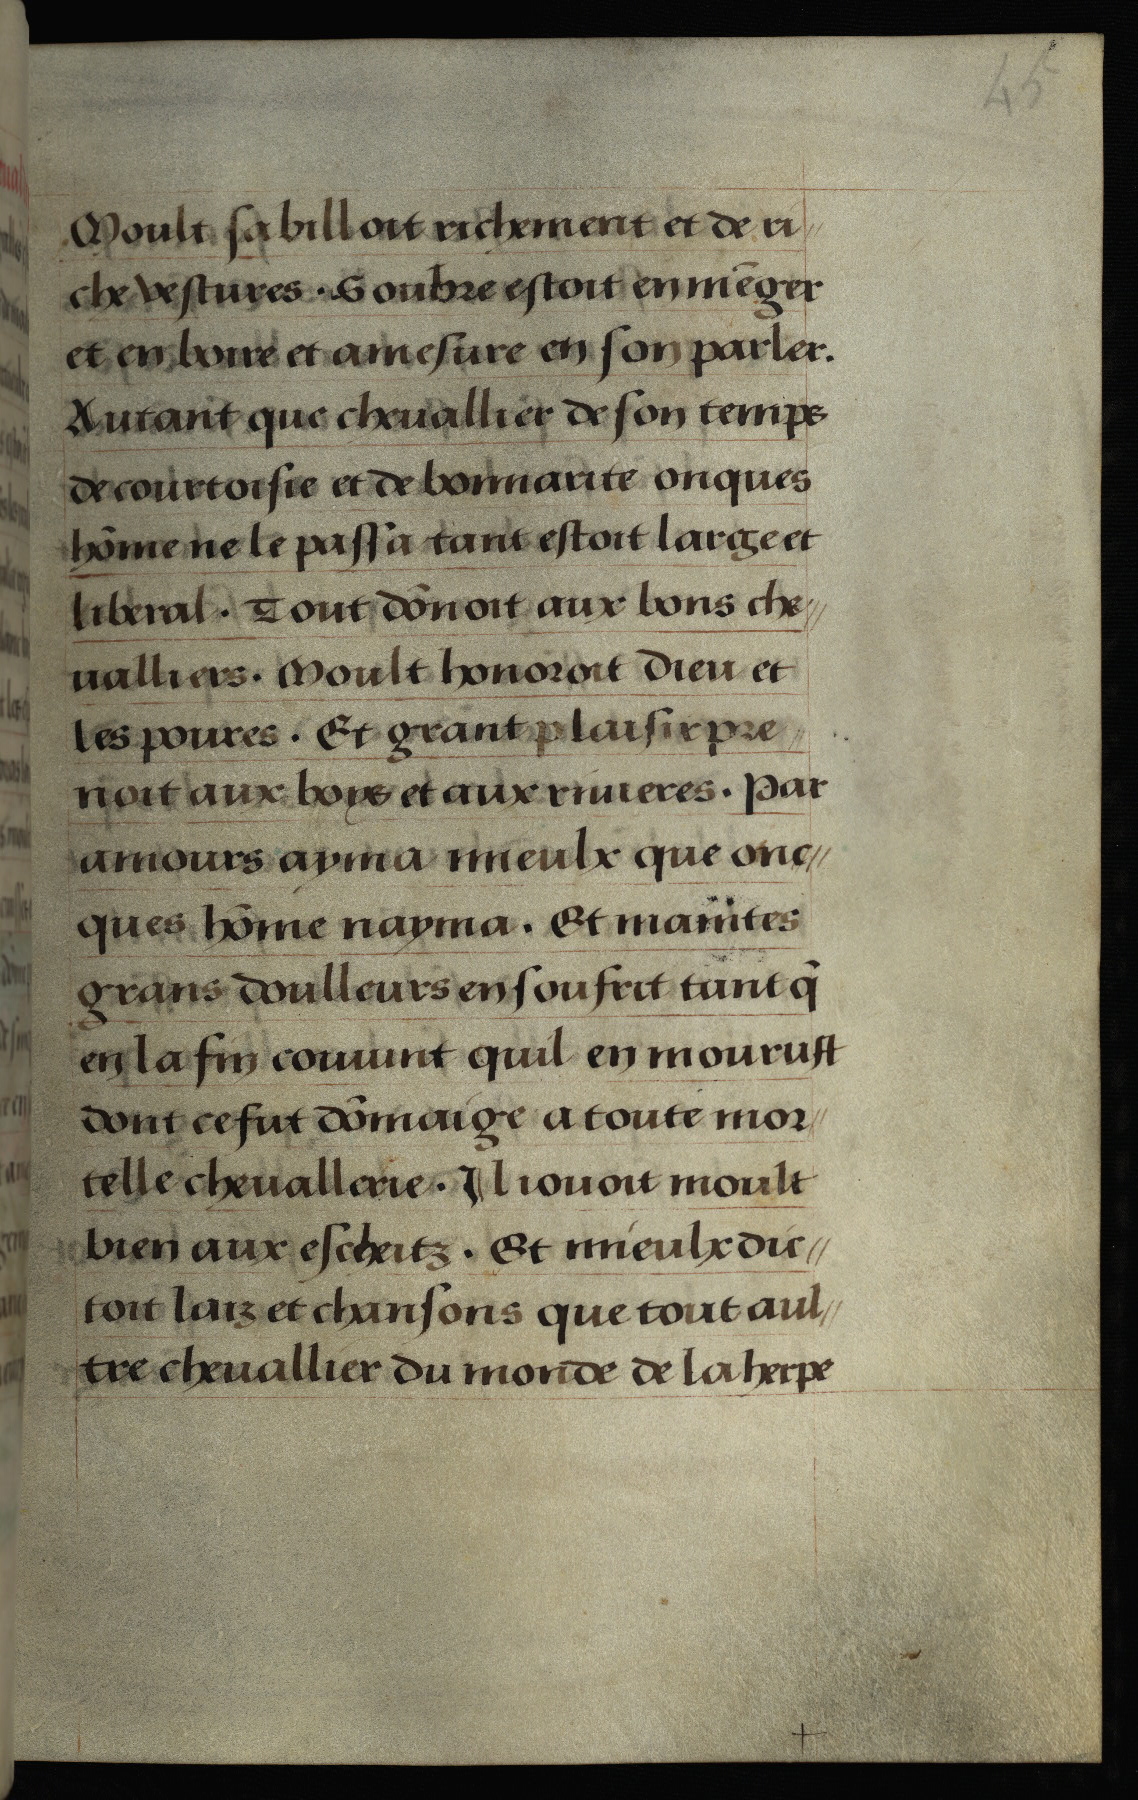 45
Moult sabilloit richement et de ri//
che vestures · Soubre estoit en mēger
et en boire et amesure en son parler.
Autant que cheuallier de son temps
de courtoisie et de bonnarite onques
hōme ne le passa tant estoit large et
liberal · Tout dōnoit aux bons che//
ualliers. Moult honoroit dieu et
les poures · Et grant plaisir pre//
noit aux boys et aux riuieres. Par
amours ayma mieulx que onc//
ques hōme nayma. Et maintes
grans doulleurs en soufrit tant q̄
en la fin conuint quil en mourust
dont ce fut dōmaige a toute mor//
telle cheuallerie · Il iouoit moult
bien aux escheitz. Et mieulx dic//
toit laiz et chansons que tout aul//
tre cheuallier du monde de la herpe